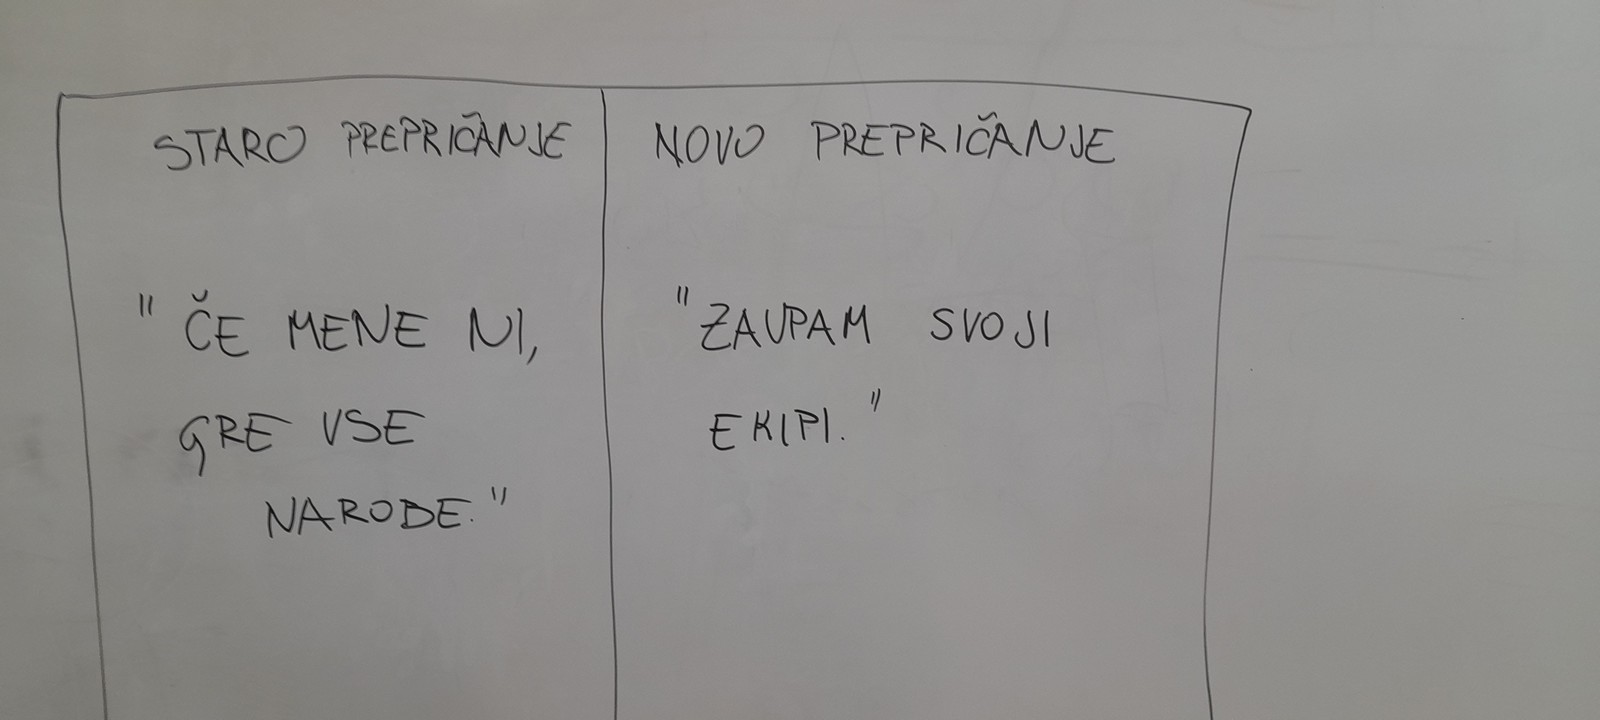 STARO PREPRIČANJE
"ČE MENE NI,
GRE VSE
NAROBE."
NOVO PREPRIČANJE
"ZAUPAM SVOJI
EKIPI."